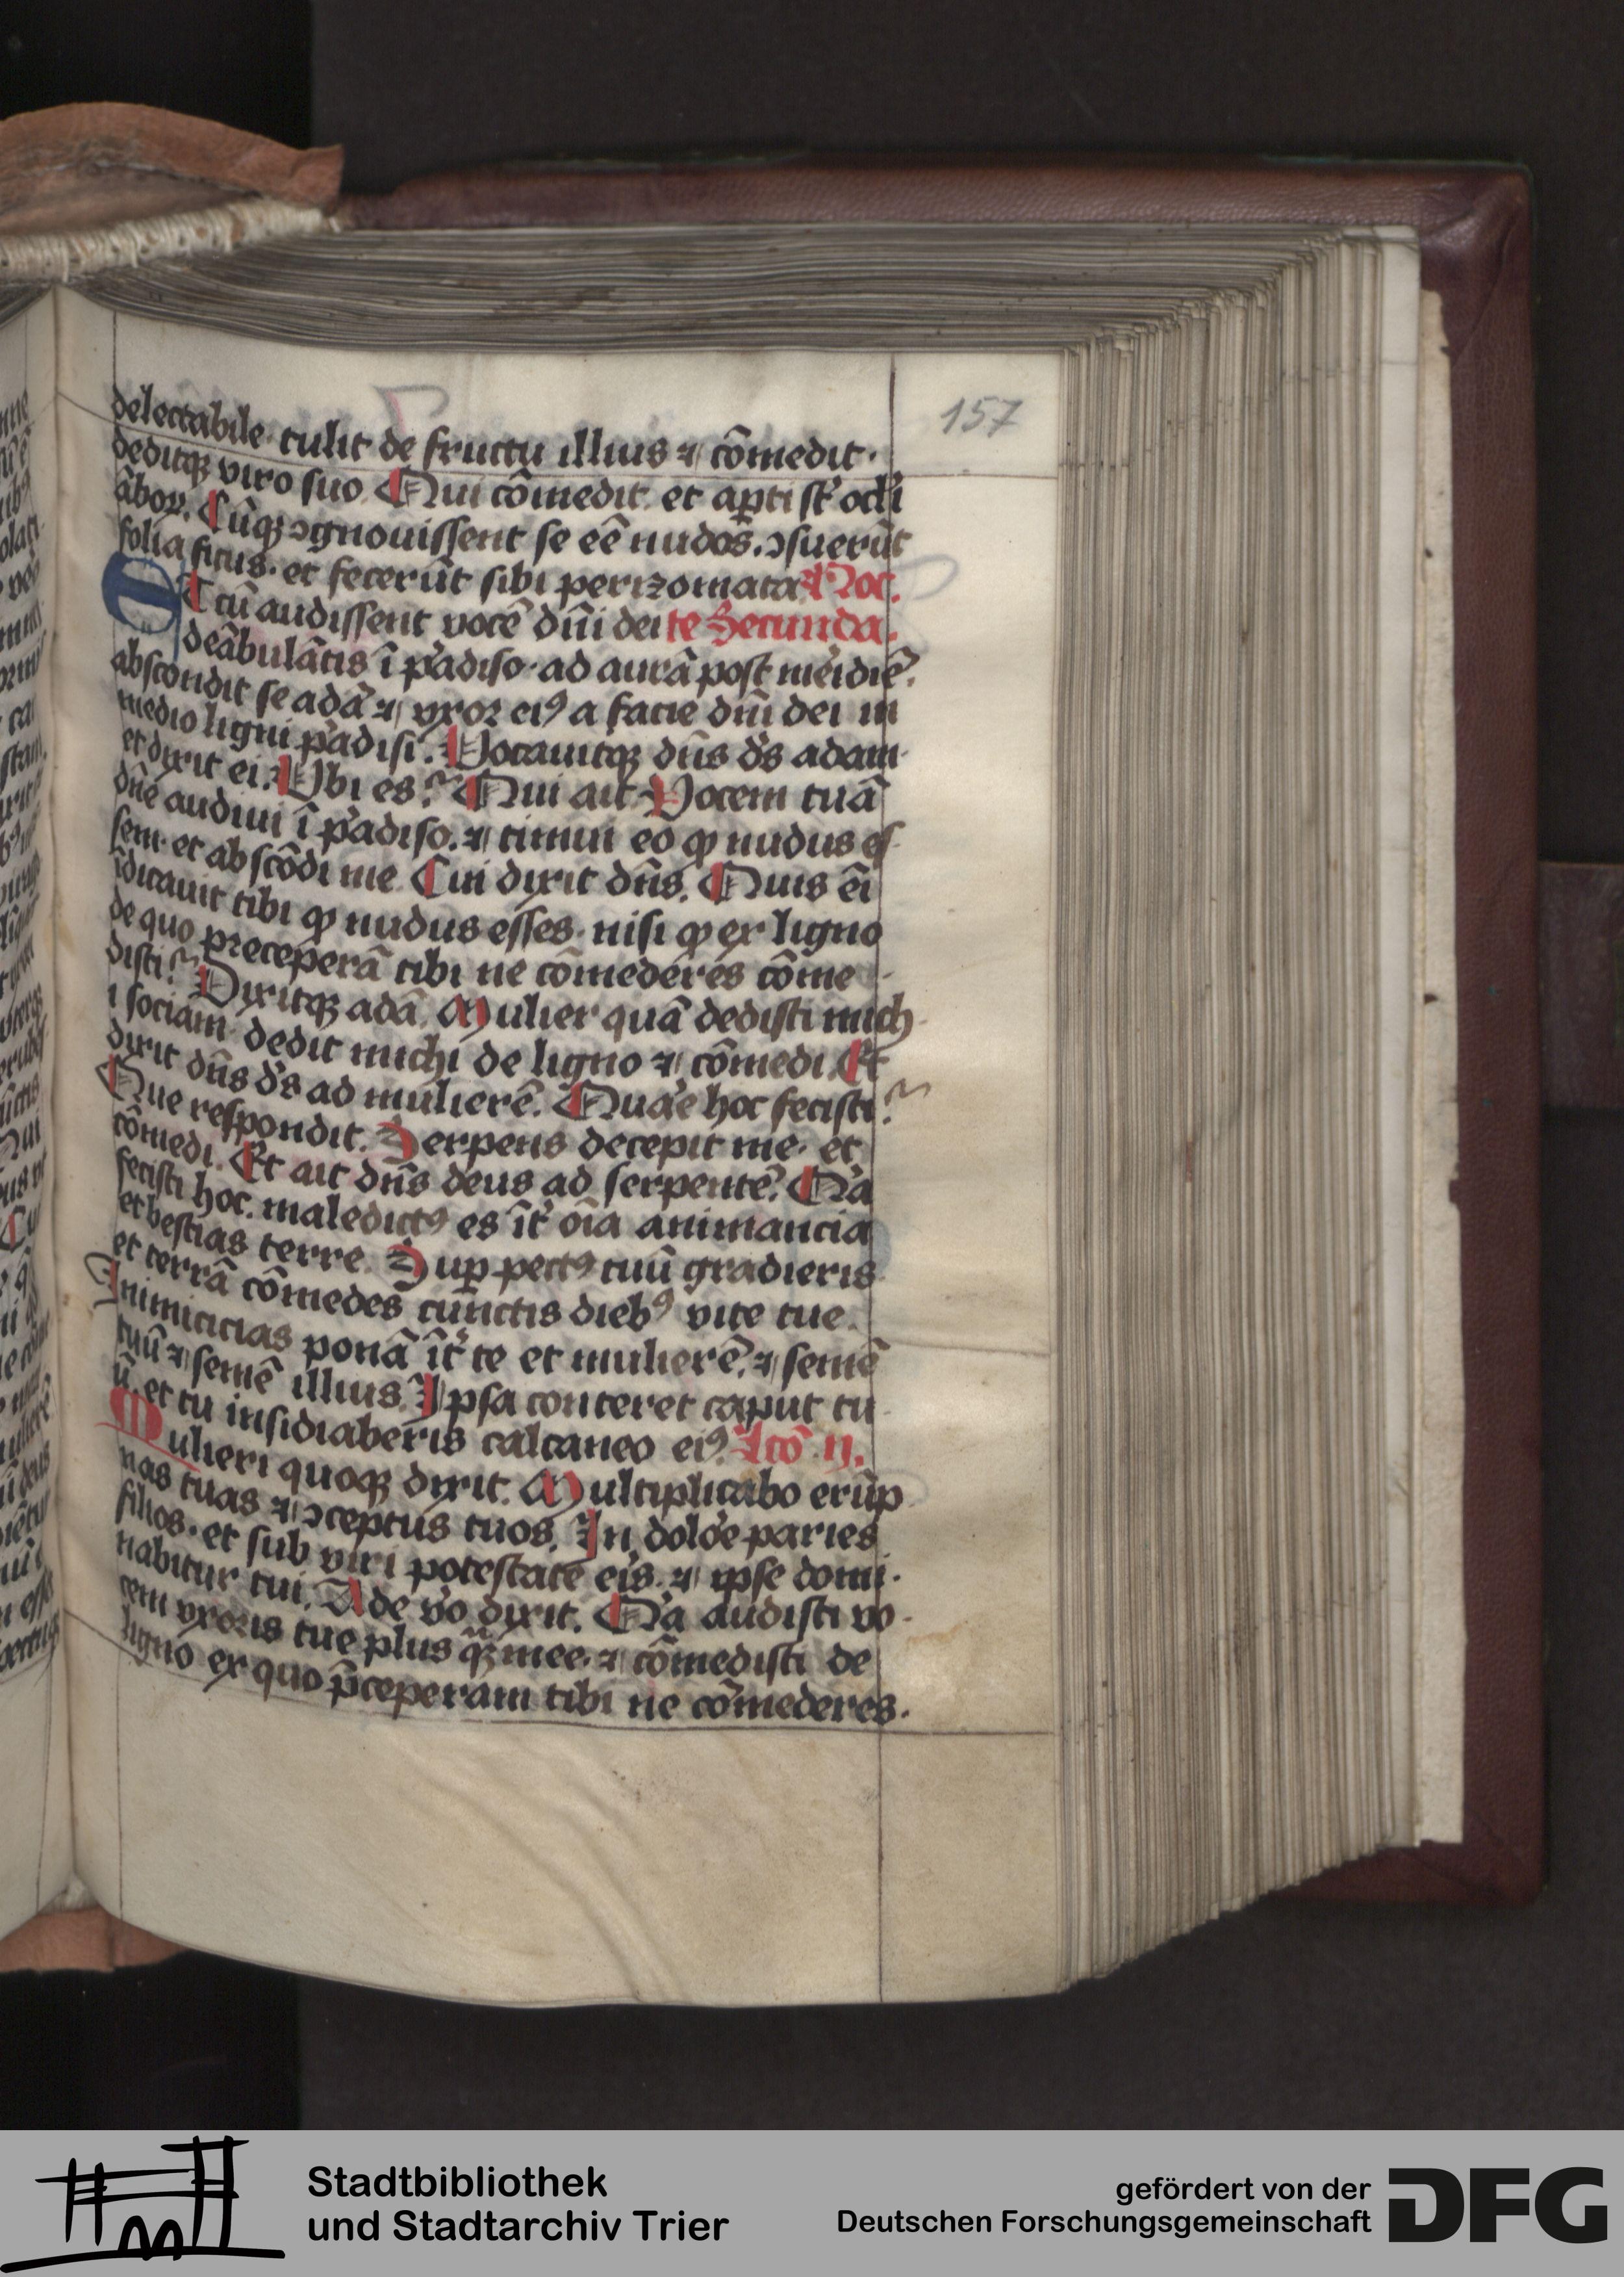 157
delectabile· tulit de fructu illius ⁊ cōmedit·
deditqꝫ viro suo. Qui cōmedit. et aꝑti st̾ ocl̾i
āboꝝ. Cūqꝫ ↄgnouissent se eē nudos. ↄsuerūt
folia ficus· et fecerūt sibi perizomata. Noc.
ET cū audissent vocē dn̄i dei te Secunda.
deābulātis ī p̾adiso· ad aurā post me̾idiē.
abscondit se adā ⁊ vxor eiꝰ a facie dn̄i dei in
medio ligni p̾adisi. Vocauitqꝫ dn̄s ds̄ adam·
et dixit ei. Vbi es? Qui ait. Vocem tuā
dn̄e audiui ī p̾adiso. ⁊ timui eo ꝙ nudus es-
sem· et abscōdi me. Cui dixit dn̄s. Quis eī
īdicauit tibi ꝙ nudus esses· nisi ꝙ ex ligno
de quo preceperā tibi ne cōmederes cōme-
disti? Dixitqꝫ adā. Mulier quā dedisti mich-
i sociam· dedit michi de ligno ⁊ cōmedi. Et
dixit dn̄s ds̄ ad mulierē. Qua̾e hoc fecisti?
Que respondit. Serpens decepit me· et
cōmedi. Et ait dn̄s deus ad serpentē. Q̾a
fecisti hoc. maledictꝰ es īt̾ oīa animancia
et bestias terre. Suꝑ pectꝰ tuū gradieris
et terrā cōmedes cunctis diebꝰ vite tue.
Inimicicias ponā īt̾ te et mulierē. ⁊ semē
tuū ⁊ semē illius. Ipsa conteret caput tu-
ū. et tu insidiaberis calcaneo eiꝰ. Lc̄o ij.
Mulieri quoqꝫ dixit. Multiplicabo erūp-
nas tuas ⁊ ↄceptus tuos. In dolo̾e paries
filios· et sub viri potestate eis̾. ⁊ ipse domi-
nabitur tui. Ade v̾o dixit. Q̾a audisti vo-
cem vxoris tue plus qꝫ̄ mee. ⁊ cōmedisti de
ligno ex quo p̄ceperam tibi ne cōmederes.
Stadtbibliothek
und Stadtarchiv Trier
gefördert von der
Deutschen Forschungsgemeinschaft
DFG